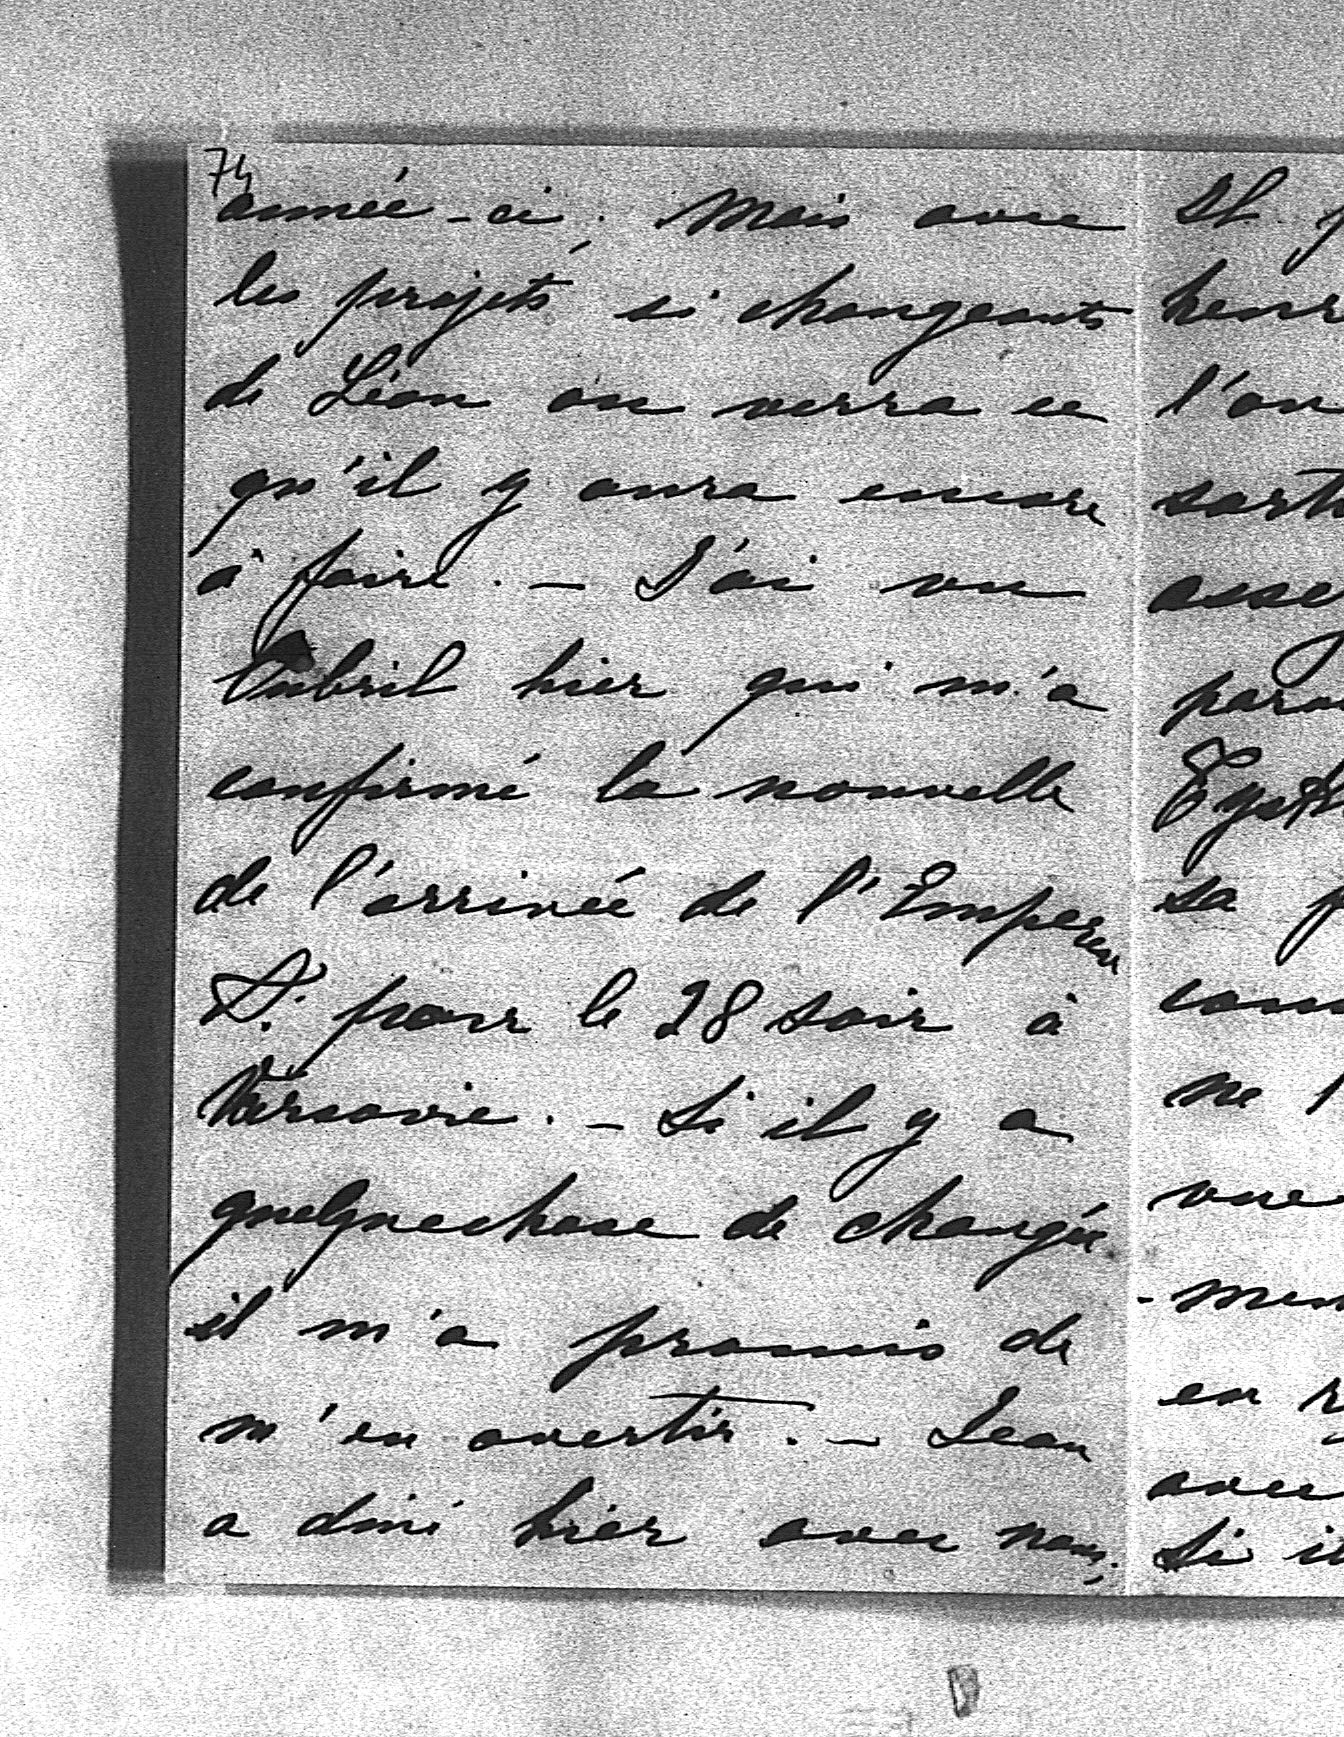 74
année-ci. Mais avec
les projets si changeants
de Léon on verra ce
qu'il y aura encore
à faire. — J'ai vu
Oubril hier qui m'a
confirmé la nouvelle
de l'arrivée de l'Empereu
D. pour le 28 soir à
Varsovie. — Si il y a
quelquechose de changée
il m'a promis de
m'en avertir. — Jean
a diné hier avec nous,
Il
l'on
sa
ne
vue
- men
en
avec
Si